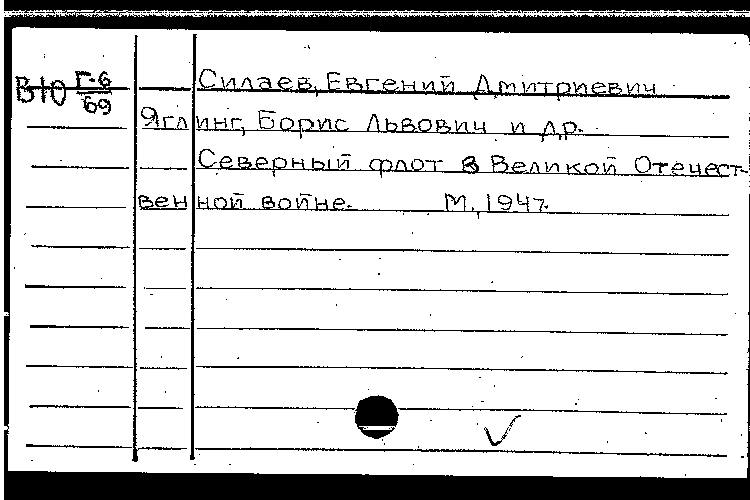 В10 Г-6/69 Силаев, Евгений Дмитриевич
Яглинг, Борис Львович и др.
Северный флот в Великой Отечест-
венной войне. М., 1947.